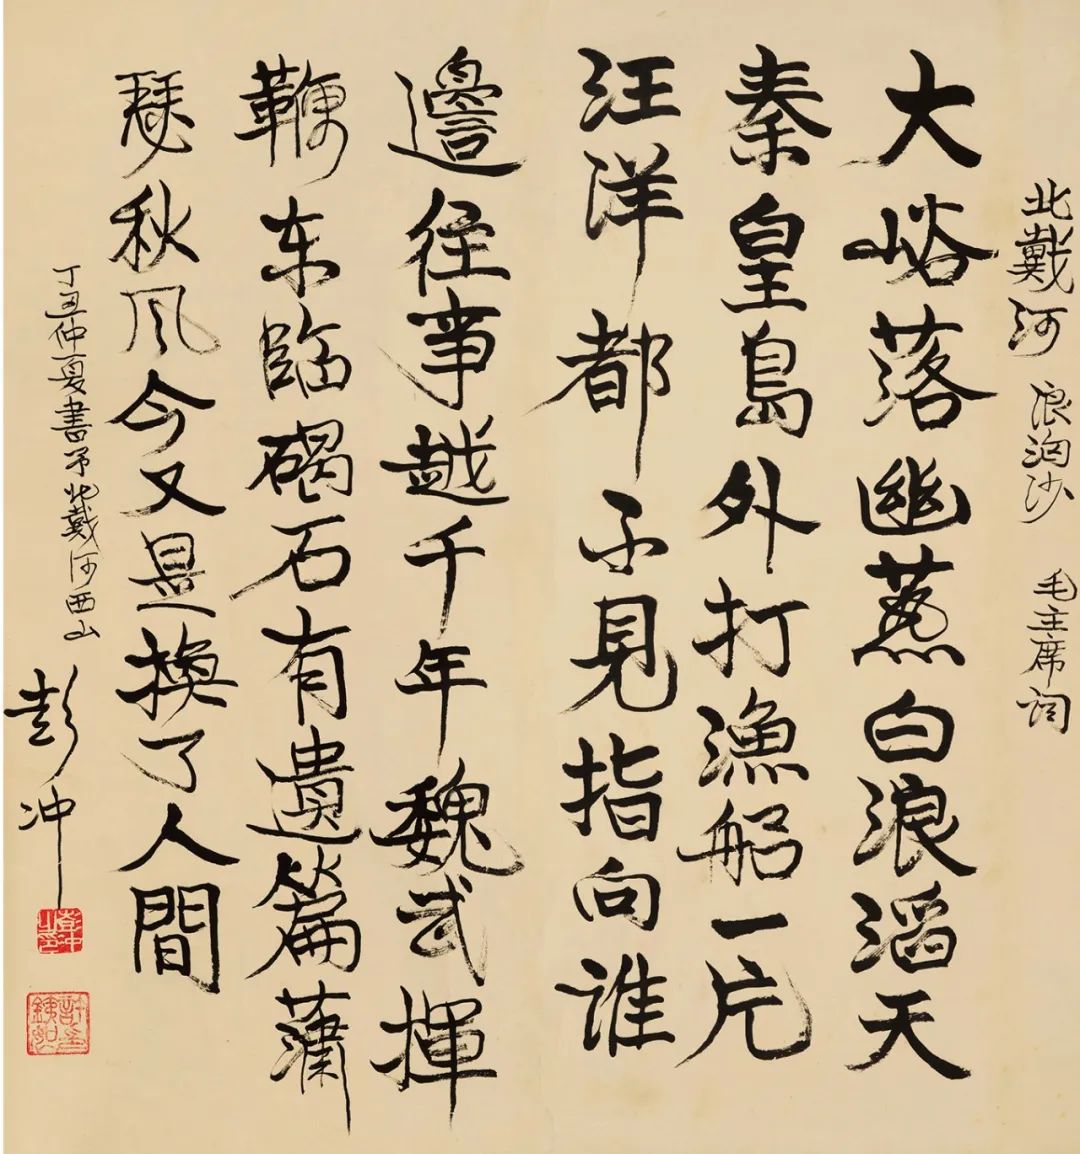 北戴河 浪淘沙 毛主席词
大峪落幽燕白浪滔天
秦皇島外打漁船一片
汪洋都不見指向谁
邊往事越千年魏武揮
鞭东臨碣石有遺篇蕭
瑟秋风今又是換了人間
丁丑仲夏書于北戴河西山
彭冲